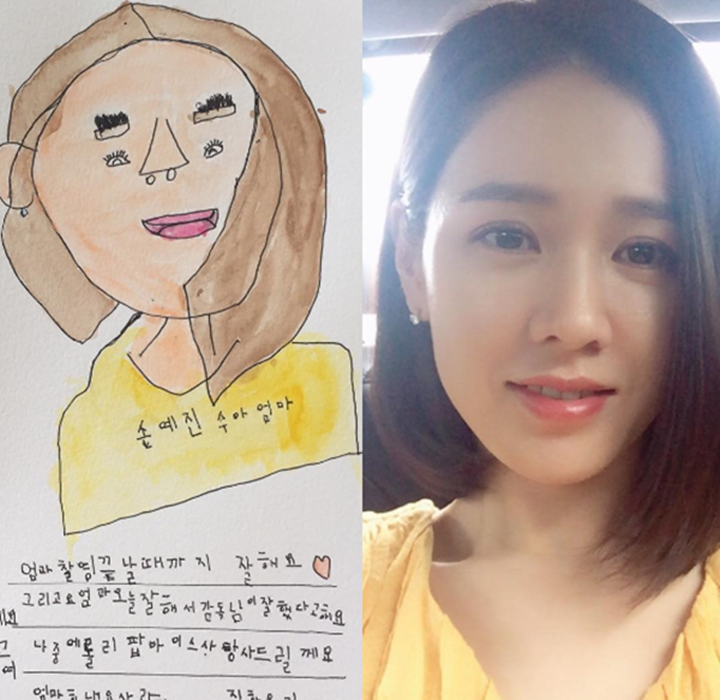 손예진 수아엄마
엄마 촬영끝날때까지 잘해요
그리고요 엄마오늘잘해서 감독님이잘했다고해요
나중에롤리팝아이스사탕사드릴께요